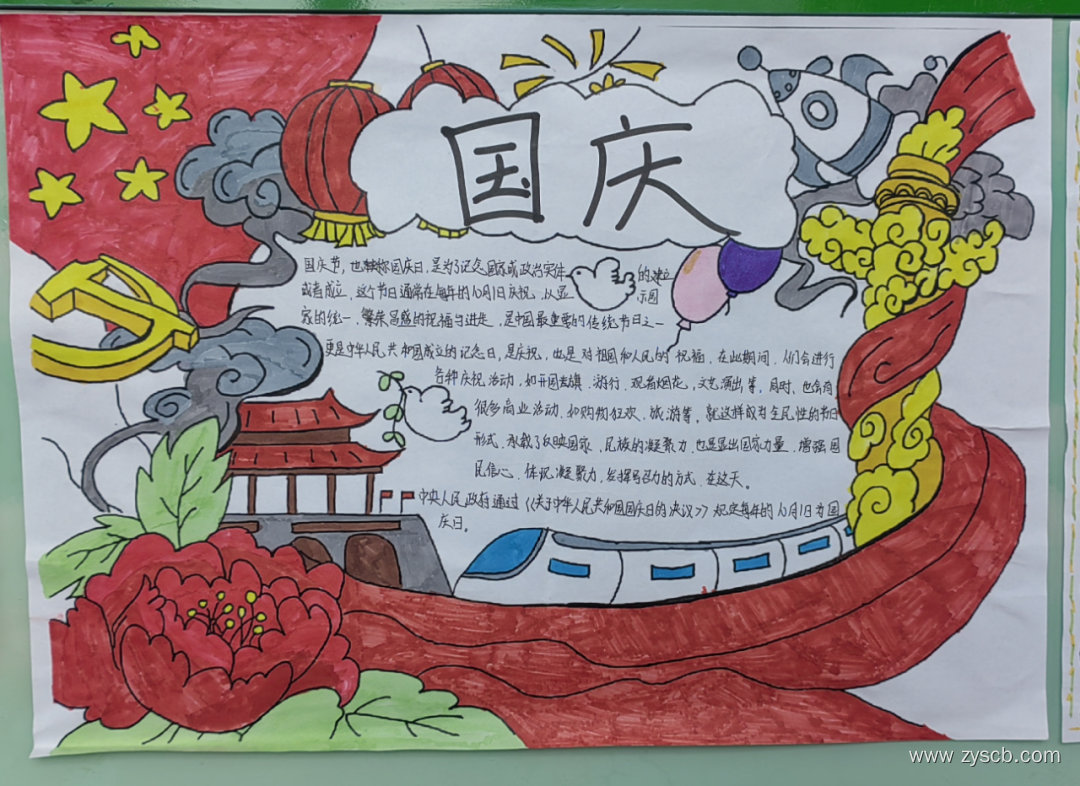 国庆
国庆节，也称国庆日，是为了记念国家或政治实体的建立
或者成立、这个节日通常在每年的10月1日庆祝、以显示国
家的统一、繁荣昌盛的祝福与进是，是中国最重要的传统节日之一
更是中华人民共和国成立的记念日，是庆祝，也是对祖国和人民的祝福、在此期间、人们会进行
各种庆祝活动，如开国去旗、游行、观看烟花，文艺演出等，同时、也会有
很多商业活动、如购物狂欢、旅游等，就这样成为全民性的节日
形式、承载了反映国家、民族的凝聚力、也是显出国家力量、增强国
民信心、体况凝聚力，发挥号召力的方式、在这天。
中央人民政府通过《《关于中华人民共和国国庆日的决议》》规定每年的10月1日为国
庆日。
www.zyscb.com